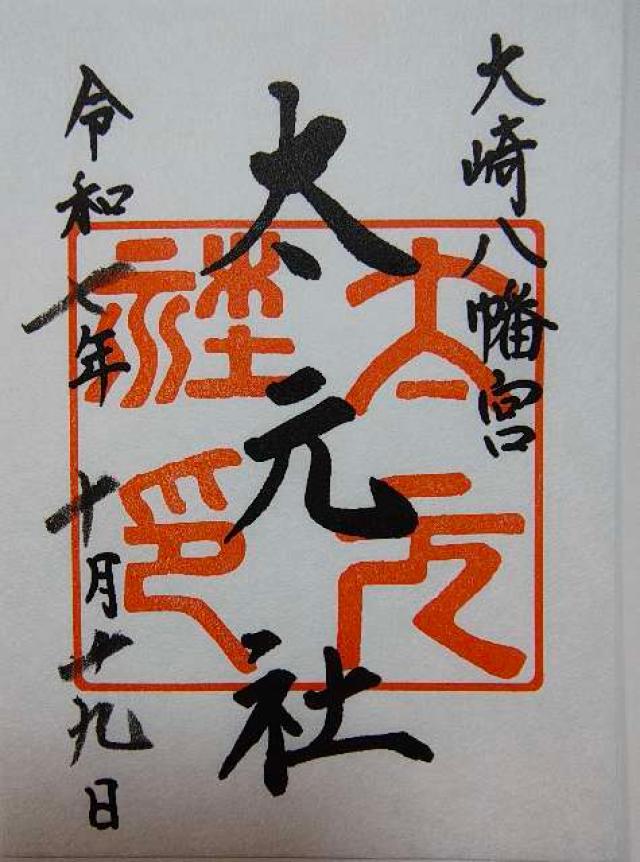 大崎八幡宮
太元社
令和七年 十月十九日
太元社印